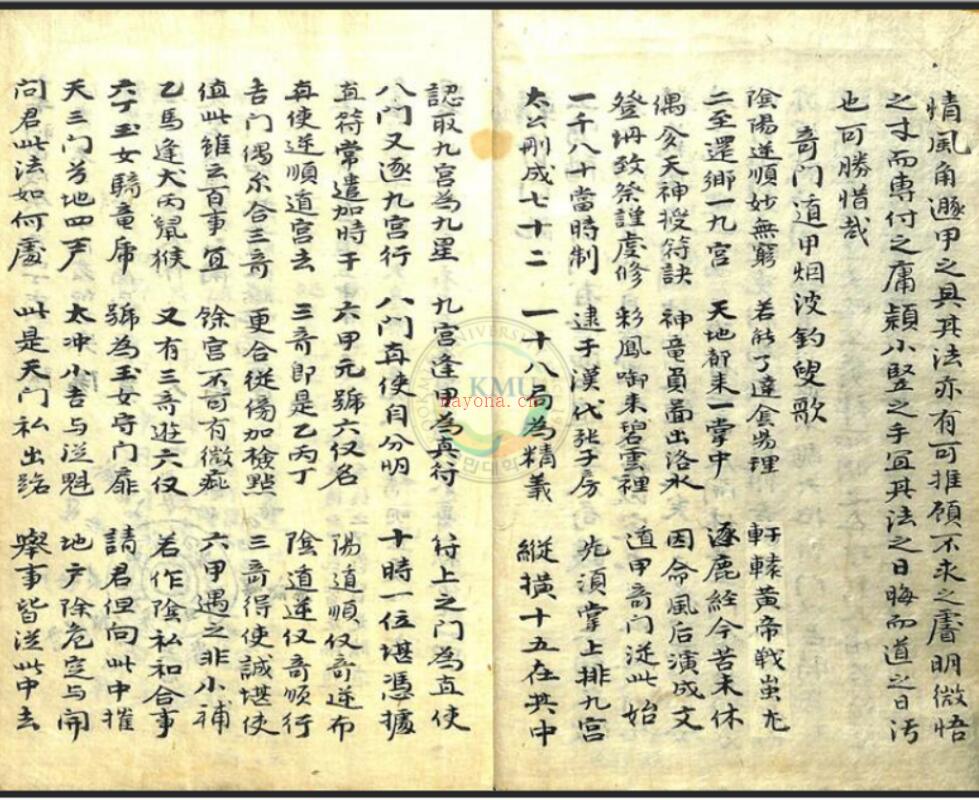 情風角遯甲之具其法亦有可推顧不求之睿明微悟
之士而專付之庸穎小竪之手宜其法之日晦而道之日汚
也可勝惜哉
奇門遁甲烟波釣叟歌
陰陽逆順妙無窮 二至還鄉一九宮
若能了達陰陽理 天地都來一掌中
軒轅黃帝戰蚩尤 逐鹿經今苦未休
偶夢天神授符訣 登坍致祭謹虔修
神竜負啚出洛水 彩鳳啣來碧雲裡
因命風后演成文 遁甲奇门從此始
一千八十當時制 太公刪成七十二
逮于漢代張子房 一十八局為精義
先須掌上排九宮 縱橫十五在其中
認取九宮為九星 八门又逐九宮行
九宮逢甲為真符 八门真使自分明
符上之门為直使 十時一位堪憑據
直符常遣加時干 真使逆順遁宮去
六甲元號六仪名 三奇即是乙丙丁
陽遁順仪奇逆布 陰遁逆仪奇順行
吉门偶尔合三奇 值此雖云百事宜
更合從傍加檢點 餘宮不可有微疵
三奇得使誠堪使 六甲遇之非小補
乙馬逢犬丙鼠猴 六丁玉女騎竜虎
又有三奇遊六仪 號為玉女守门扉
若作陰私和合事 請君但向此中推
天三门兮地四户 问君此法如何處
太冲小吉与從魁 此是天门私出路
地户除危定与開 舉事皆從此中去
KMU
nayona.cn